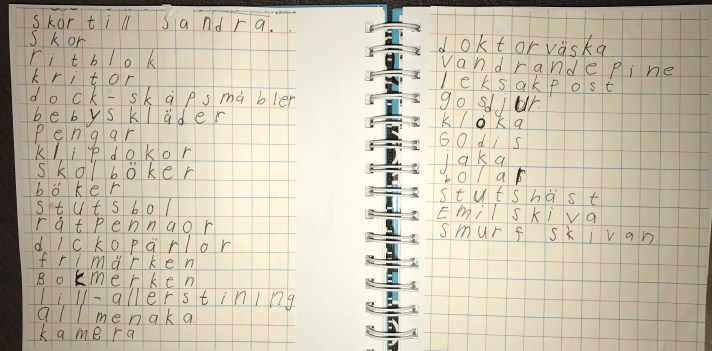 skor till Sandra.
Skor
ritblok
kritor
dock-skåpsmäbler
bebyskläder
pengar
klipdokor
skolböker
böker
stutsbol
råtpennaor
dickopärlor
frimärken
Bokmerken
lill-allerstining
allmenaka
kamera
doktorväska
vandrandepine
leksakpost
gosdjur
kloka
Godis
jaka
bolar
stutshäst
Emilskiva
smurfskivan